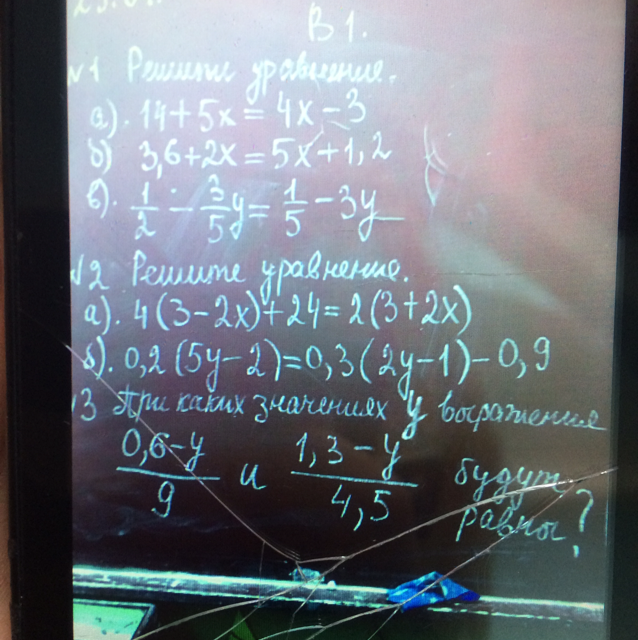 В 1.
№1 Решити уравнение.
а). 14+5x = 4x-3
б) 3,6+2x = 5x+1,2
в). 1/2 - 3/5 y = 1/5 - 3y
№2 Решите уравнение.
а). 4(3-2x)+24=2(3+2x)
б). 0,2(5y-2)=0,3(2y-1)-0,9
№3 При каких значениях y выражения
0,6-y/9 и 1,3-y/4,5 будут
равны?